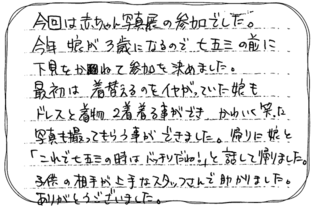 今回は赤ちゃん写真展の参加でした。
今年娘が3歳になるので、七五三の前に
下見をかねて参加を決めました。
最初は着替えるのをイヤがっていた娘も
ドレスと着物2着着る事ができ、かわいく笑った
写真も撮ってもらう事ができました。帰りに娘と
「これで七五三の時はバッチリだね!」と話して帰りました。
子供の相手が上手なスタッフさんで助かりました。
ありがとうございました。